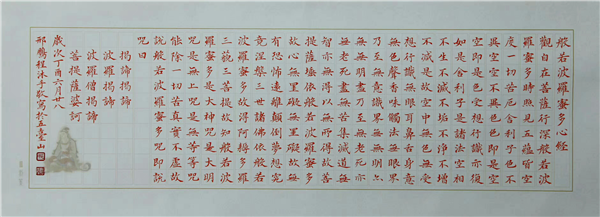 般若波羅蜜多心經
觀自在菩薩行深般若波
羅蜜多時照見五蘊皆空
度一切苦厄舍利子色不
異空空不異色色即是空
空即是色受想行識亦復
如是舍利子是諸法空相
不生不滅不垢不淨不增
不減是故空中無色無受
想行識無眼耳鼻舌身意
無色聲香味觸法無眼界
乃至無意識界無無明亦
無無明盡乃至無老死亦
無老死盡無苦集滅道無
智亦無得以無所得故菩
提薩埵依般若波羅蜜多
故心無罣礙無罣礙故無
有恐怖遠離顛倒夢想究
竟涅槃三世諸佛依般若
波羅蜜多故得阿耨多羅
三藐三菩提故知般若波
羅蜜多是大神咒是大明
咒是無上咒是無等等咒
能除一切苦真實不虛故
說般若波羅蜜多咒即說
咒曰
揭諦揭諦
波羅揭諦
波羅僧揭諦
菩提薩婆訶
歲次丁酉六月廿八
邢鵬程沐手敬寫於五臺山